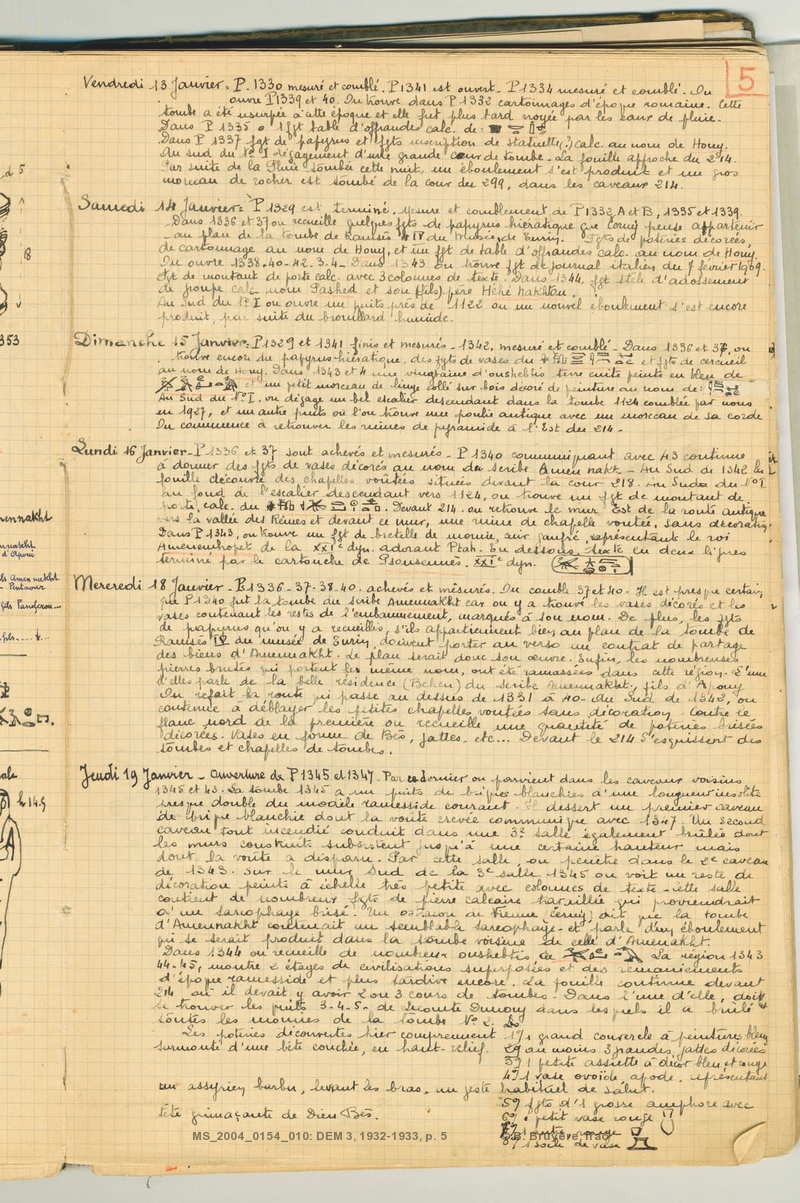 5
Vendredi 13 Janvier. P. 1330 mesuré et comblé. P1341 est ouvert. P1334 mesuré et comblé. On
ouvre P1339 et 40. On trouve dans P 1332 cartonnages d'époque romaine. Cette
tombe a été usurpée à cette époque et elle fut plus tard noyée par les eaux de pluie.
Dans P 1335 1 fgt table d'offrandes calc. de:
Dans P 1337 fgt de papyrus et fgts inscription de statuette(?) calc. au nom de Houy.
Au sud du 1er I dégagement d'une grande cour de tombe. La fouille approche du 214.
Par suite de la pluie tombée cette nuit, un éboulement s'est produit et un gros
morceau de rocher est tombé de la cour du 299, dans les caveaux 214.
Samedi 14 Janvier: P 1329 est terminé. Mesure et comblement de P1332 A et B, 1335 et 1339.
Dans 1336 et 37 on recueille quelques fgts de papyrus hiératique que Cerny pense appartenir
au plan de la tombe de Ramsès IV du Musée de Turin. Fgts de poteries décorées,
de cartonnage au nom de Houy, et un fgt de table d'offrandes calc. au nom de Houy.
On ouvre 1338-40-42-3-4. Dans 1343 on trouve fgt de journal italien du 7 février 1909.
Fgt de montant de porte calc. avec 3 colonnes de texte. Dans 1344, fgt stèle d'adossement
de groupe calc. nom Pashed et son (fils) père Héhé nakhtou.
Au Sud du 1er I on ouvre un puits près de 1122 où un nouvel éboulement s'est encore
produit, par suite du brouillard humide.
Dimanche 15 Janvier: P1329 et 1341 finis et mesurés. 1342, mesuré et comblé. Dans 1336 et 37, on
trouve encore du papyrus hiératique, des fgts de vases du et fgts de cercueil
au nom de Houy. Dans 1343 et 4 une vingtaine d'oushebtis terre cuite peints en bleu de
et un petit morceau de linge collé sur bois décoré de peinture au nom de:
Au Sud du 1er I. on dégage un bel escalier descendant dans la tombe 1124 comblée par nous
en 1927, et un autre puits où l'on trouve une poulie antique avec un morceau de sa corde
On commence à retrouver les ruines de pyramide à l'Est du 214.
Lundi 16 Janvier. P 1336 et 37 sont achevés et mesurés. P 1340 communiquant avec 43 continue
à donner des fgts de vases décorés au nom du scribe Amen nakt. Au Sud de 1342 la
fouille découvre des chapelles voûtées situées devant la cour 218. Au Sud du 1er I
au fond de l'escalier descendant vers 1124, on trouve un fgt de montant de
porte calc. du Devant 214. on retrouve le mur Est de la route antique
vers la vallée des Reines et devant ce mur, une ruine de chapelle voûtée, sans décoration.
Dans P 1343, on trouve un fgt de bretelle de momie, cuir gaufré, représentant le roi
Amenemhopet de la XXIe dyn. adorant Ptah. En dessous, texte en deux lignes
terminé par le cartouche de Psousennès. XXIe dyn.
Mercredi 18 Janvier. P.1336-37-38-40. achevés et mesurés. On comble 37 et 40. Il est presque certain
que P 1340 fut la tombe du scribe Amennakht car on y a trouvé les vases décorés et les
vases contenant les restes de l'embaumement, marqués à son nom. De plus, les fgts
de papyrus qu'on y a recueillis, s'ils appartiennent bien au plan de la tombe de
Ramsès IV du musée de Turin, doivent porter au verso un contrat de partage
des biens d'Amennakht. Le plan serait donc son œuvre. Enfin, les nombreuses
pierres brutes qui portent le même nom, ont été ramassées dans cette région. L'une
d'elles parle de la belle résidence (Bekhen) du scribe Amennakht, fils d'Apouy
On refait la route qui passe au dessus de 1331 à 40. Au Sud de 1342, on
continue à déblayer les petites chapelles voûtées sans décoration. Contre le
flanc nord de la première on recueille une quantité de poteries brisées
décorées. Vases en forme de Bès, jattes, etc... Devant le 214 s'esquissent des
tombes et chapelles de tombes.
Jeudi 19 Janvier. Ouverture de P1345 et 1347. Par ce dernier on parvient dans les caveaux voisins
1345 et 43. La tombe 1345 a un puits de briques blanchies d'une longueur insolite
presque double du modèle ramesside courant. Il dessert un premier caveau
de brique blanchie dont la voûte crevée communique avec 1347. Un second
caveau tout incendié conduit dans une 3e salle également brûlée dont
les murs construits subsistent jusqu'à une certaine hauteur mais
dont la voûte a disparu. Par cette salle, on pénètre dans le 2e caveau
de 1343. Sur le mur Sud de la 3e salle 1345 on voit un reste de
décoration peinte à échelle très petite avec colonnes de texte. Cette salle
contient de nombreux fgts de pierre calcaire travaillée qui proviendrait
d'un sarcophage brisé. Un ostracon de Vienne (Cerny) dit que la tombe
d'Amennakht contenait un semblable sarcophage et parle d'un éboulement
qui se serait produit dans la tombe voisine de celle d'Amenakht.
Dans 1344 on recueille de nombreux oushebtis de La région 1343
44-45, montre 2 étages de civilisations superposées et des remaniements
d'époque ramesside et plus tardive encore. La fouille continue devant
214 où il devait y avoir 2 ou 3 cours de tombes. Dans l'une d'elle, doit
se trouver les puits 3-4-5. de Lecomte Dunouy dans lesquels il a brûlé
toutes les momies de la tombe No 2.
Les poteries découvertes hier comprennent 1º/1 grand couvercle à peintures bleu
surmonté d'une bête couchée, en haut-relief. 2º/ au moins 3 grandes jattes décorées
3º/1 petite assiette à décor bleu et rouge
4º/1 vase ovoïde apode. représentant
un assyrien barbu, levant les bras, un geste habituel de salut.
5º/ fgts d'1 grosse amphore avec
tête grimaçante de Dieu Bès. 6º/1 petit vase rouge
8º/1 socle de vase
MS_2004_0154_010: DEM 3, 1932-1933, p. 5
© B. Bruyère, Ifao